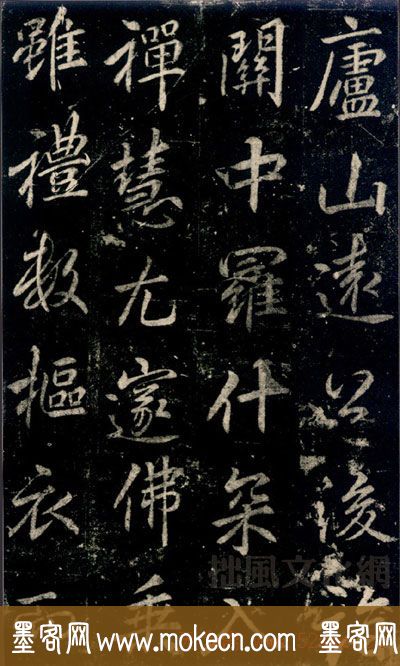 廬山遠公後
關中羅什
禪慧尤邃佛
雖禮數摳衣
拙風文化網
墨客网 www.mokecn.com 墨客网